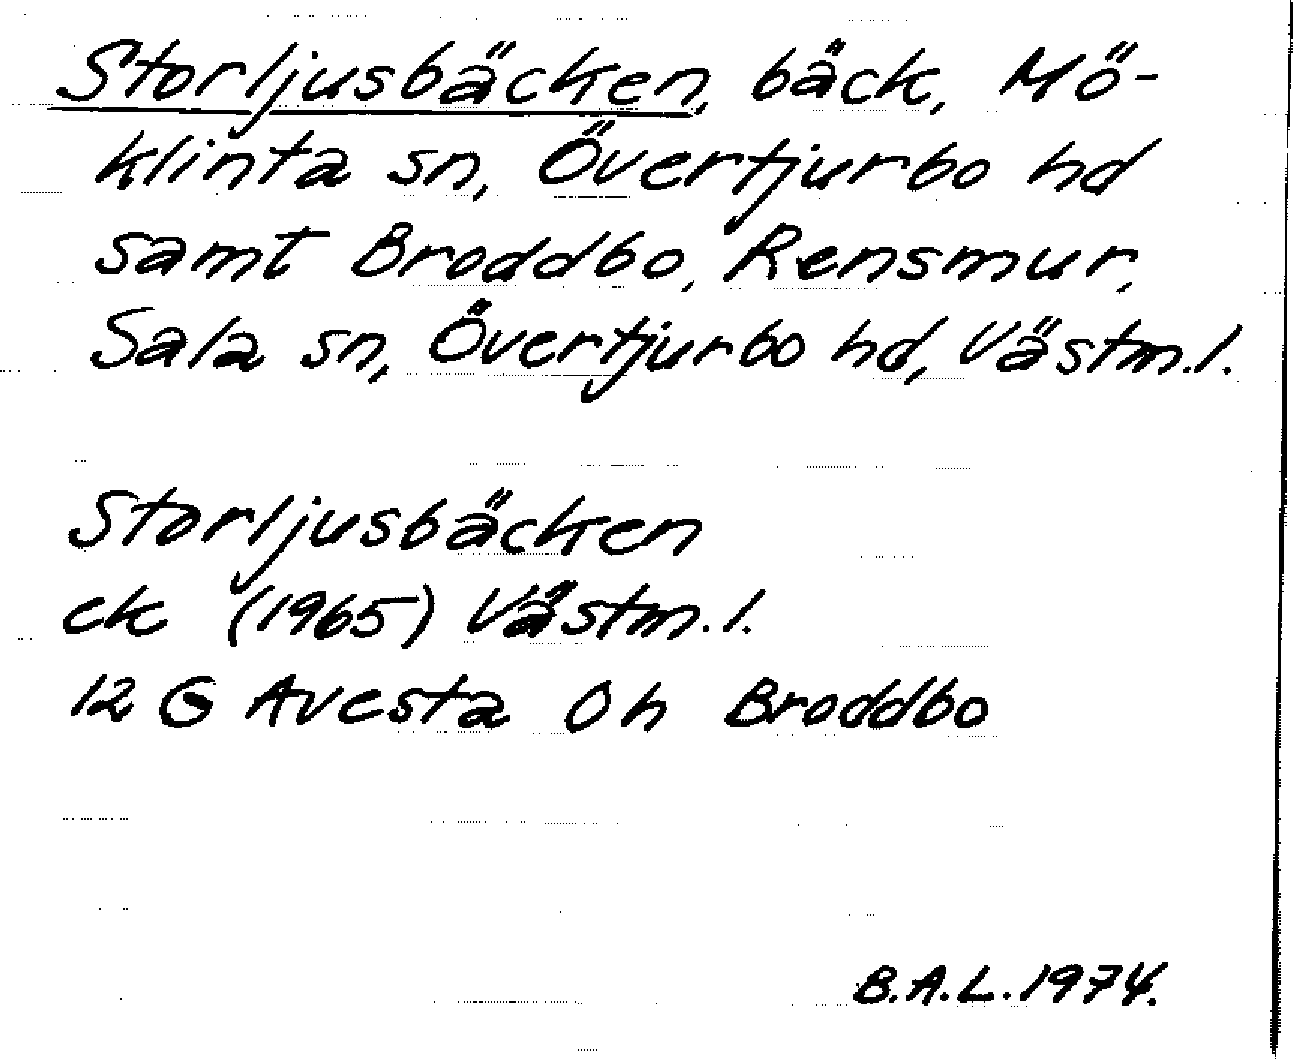 Storljusbäcken, bäck, Mö-
klinta sn, Övertjurbo hd
samt Broddbo, Rensmur,
Sala sn, Övertjurbo hd, Västm.l.
Storljusbäcken
ek (1965) Västm.l.
12 G Avesta 0 h Broddbo
B.A.L. 1974.